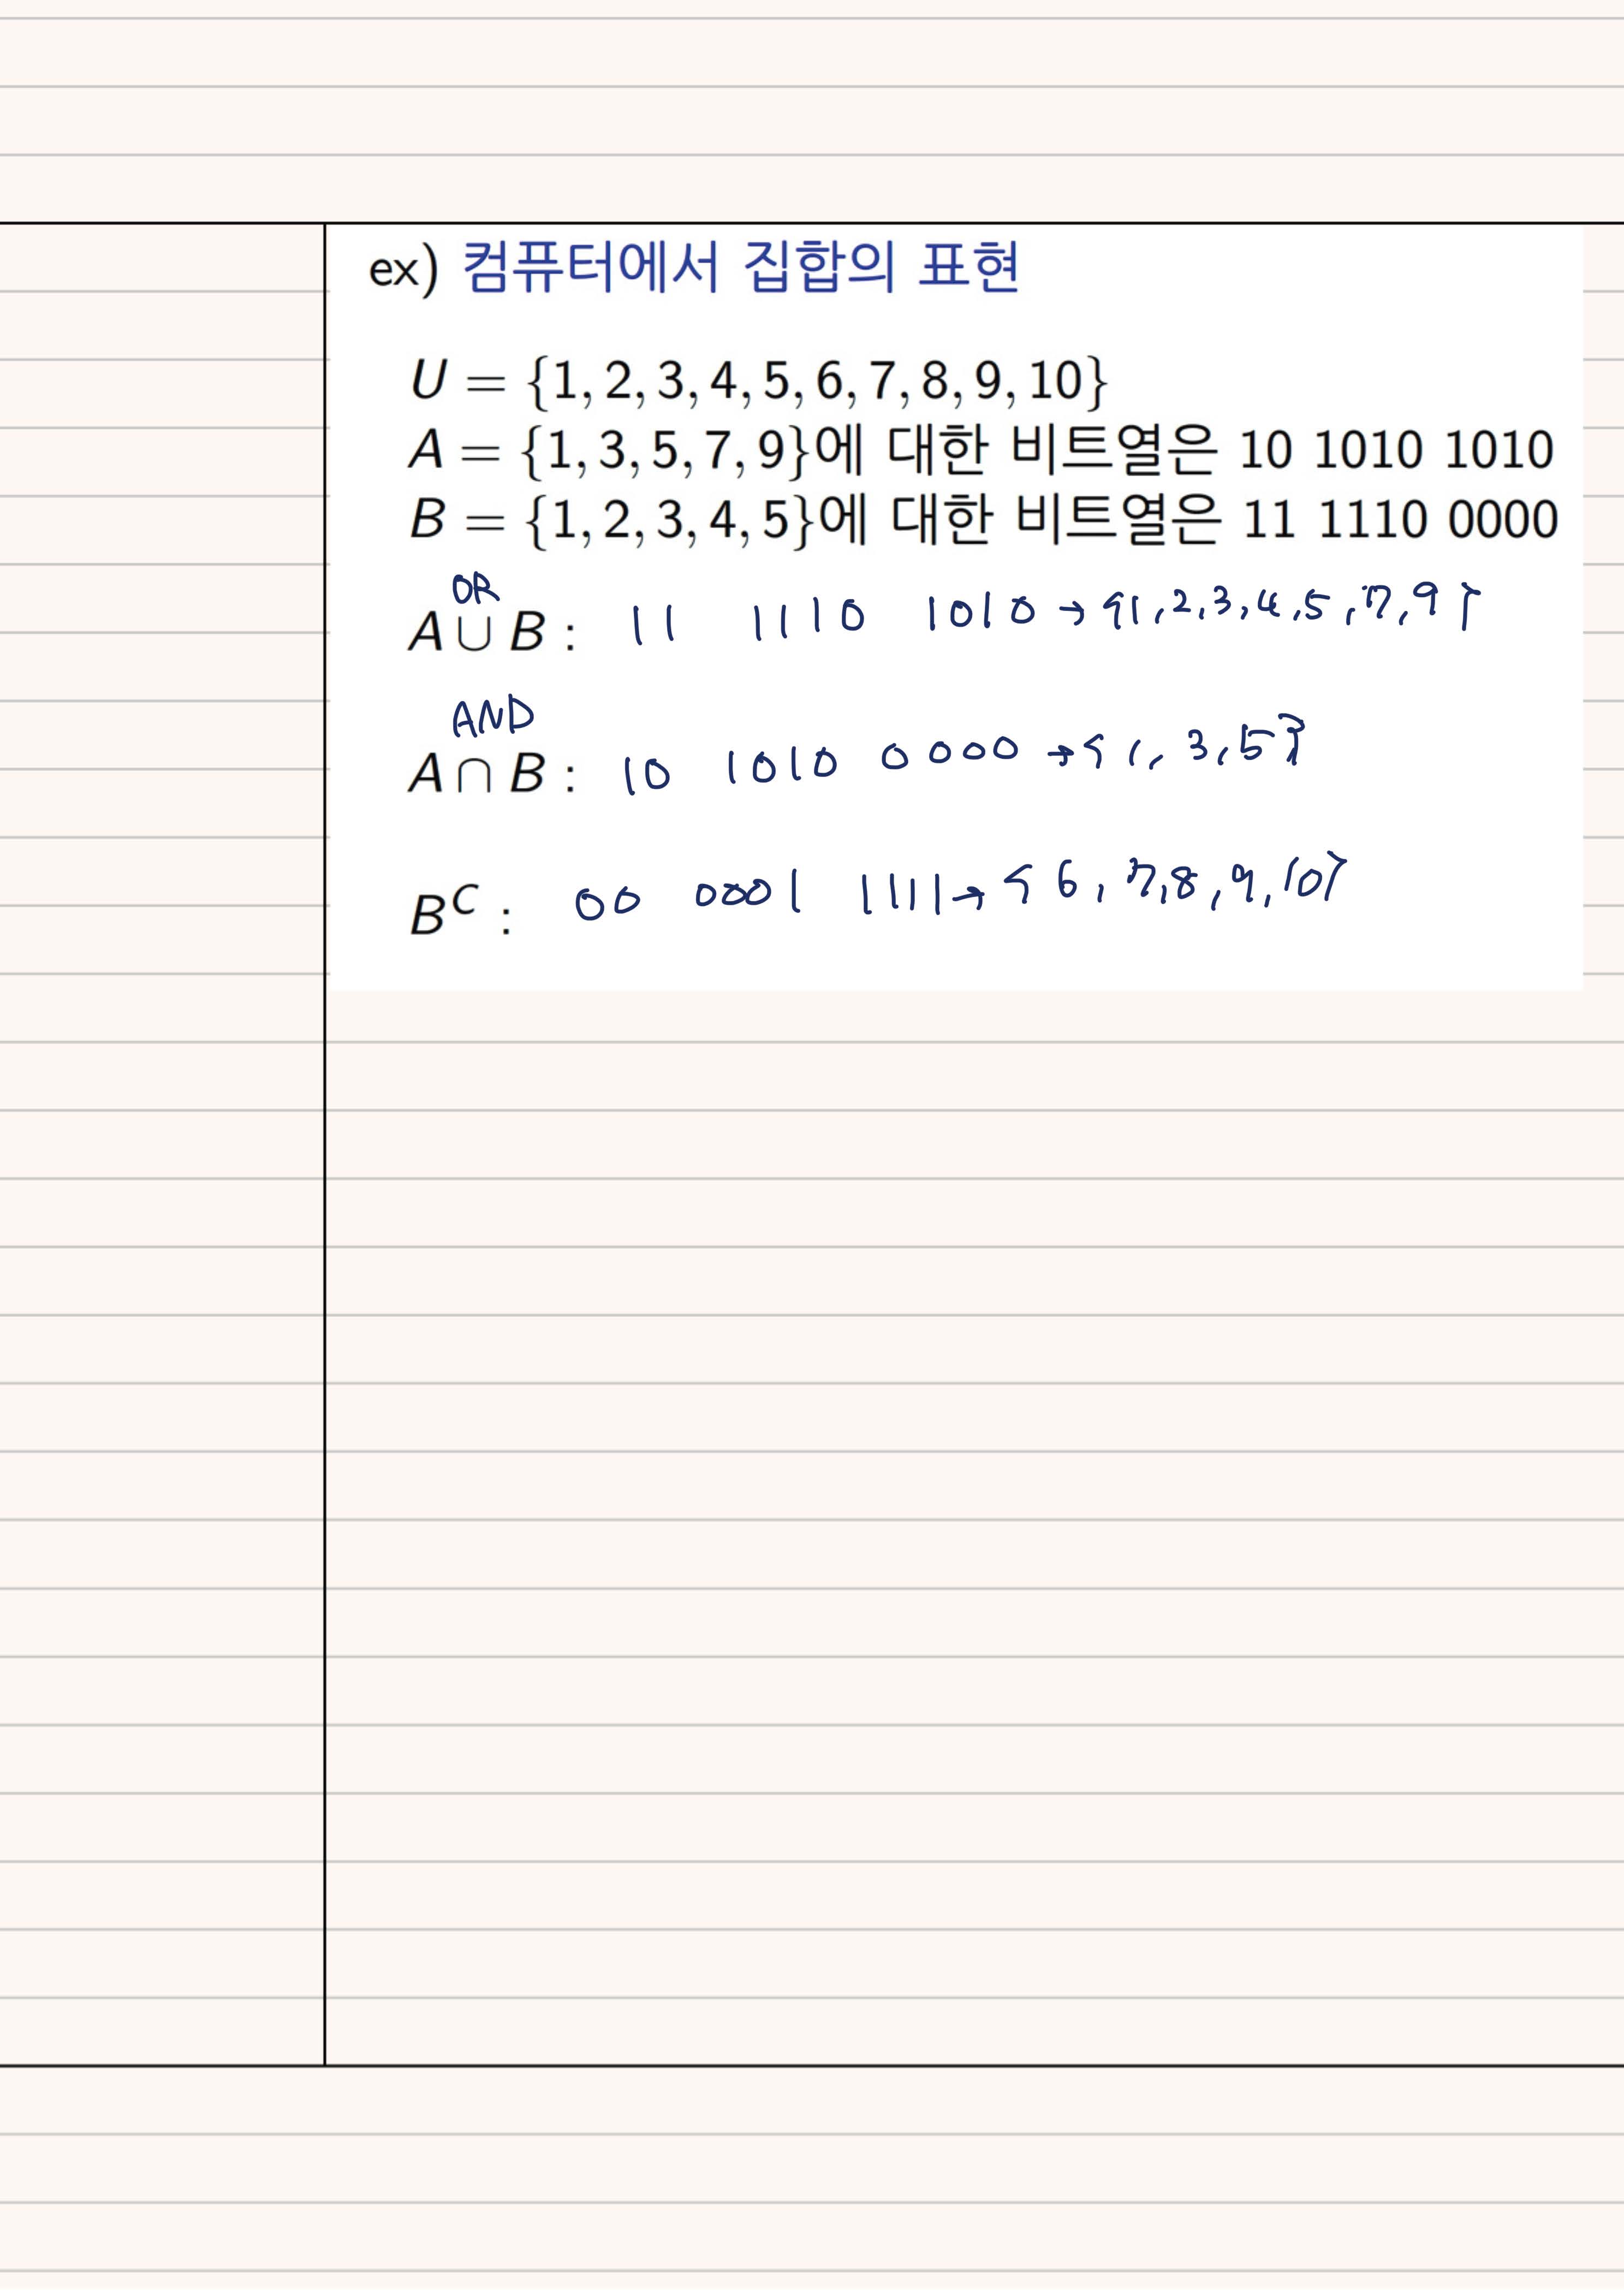 ex) 컴퓨터에서 집합의 표현
U = {1, 2, 3, 4, 5, 6, 7, 8, 9, 10}
A = {1, 3, 5, 7, 9}에 대한 비트열은 10 1010 1010
B = {1, 2, 3, 4, 5}에 대한 비트열은 11 1110 0000
OR
A ∪ B : 11 1110 1010 → {1, 2, 3, 4, 5, 7, 9}
AND
A ∩ B : 10 1010 0000 → {1, 3, 5}
B^C : 00 0001 1111 → {6, 7, 8, 9, 10}